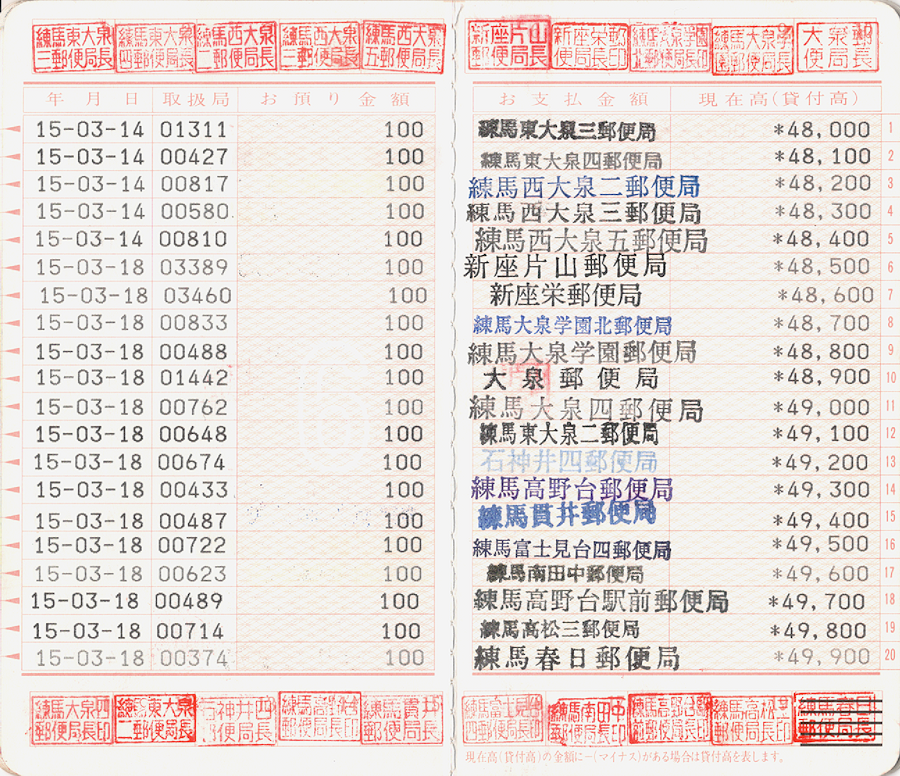 練馬東大泉三郵便局長 練馬東大泉四郵便局長 練馬西大泉二郵便局長 練馬西大泉三郵便局長 練馬西大泉五郵便局長 新座片山郵便局長 新座栄郵便局長印 練馬大泉学園北郵便局長印 練馬大泉学園郵便局長 大泉郵便局長
年月日 取扱局 お預り金額 お支払金額 現在高(貸付高)
15-03-14 01311 100 練馬東大泉三郵便局 *48,000 1
15-03-14 00427 100 練馬東大泉四郵便局 *48,100 2
15-03-14 00817 100 練馬西大泉二郵便局 *48,200 3
15-03-14 00580 100 練馬西大泉三郵便局 *48,300 4
15-03-14 00810 100 練馬西大泉五郵便局 *48,400 5
15-03-18 03389 100 新座片山郵便局 *48,500 6
15-03-18 03460 100 新座栄郵便局 *48,600 7
15-03-18 00833 100 練馬大泉学園北郵便局 *48,700 8
15-03-18 00488 100 練馬大泉学園郵便局 *48,800 9
15-03-18 01442 100 大泉郵便局 *48,900 10
15-03-18 00762 100 練馬大泉四郵便局 *49,000 11
15-03-18 00648 100 練馬東大泉二郵便局 *49,100 12
15-03-18 00674 100 石神井四郵便局 *49,200 13
15-03-18 00433 100 練馬高野台郵便局 *49,300 14
15-03-18 00487 100 練馬貫井郵便局 *49,400 15
15-03-18 00722 100 練馬富士見台四郵便局 *49,500 16
15-03-18 00623 100 練馬南田中郵便局 *49,600 17
15-03-18 00489 100 練馬高野台駅前郵便局 *49,700 18
15-03-18 00714 100 練馬高松三郵便局 *49,800 19
15-03-18 00374 100 練馬春日郵便局 *49,900 20
練馬大泉四郵便局長印 練馬東大泉二郵便局長 石神井四郵便局長印 練馬貫井郵便局長印 練馬南田中郵便局長印 練馬高松三郵便局長印 練馬春日郵便局長
現在高(貸付高)の金額に-(マイナス)がある場合は貸付高を表します。